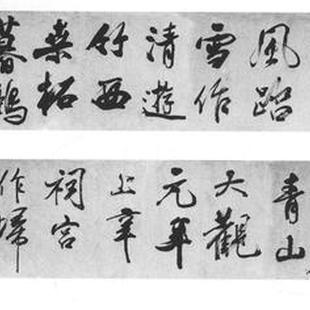 風踏
雪作
清遊
竹西
桑柘
暮鴉
青山
大觀
元年
上辛
祠宮
作歸